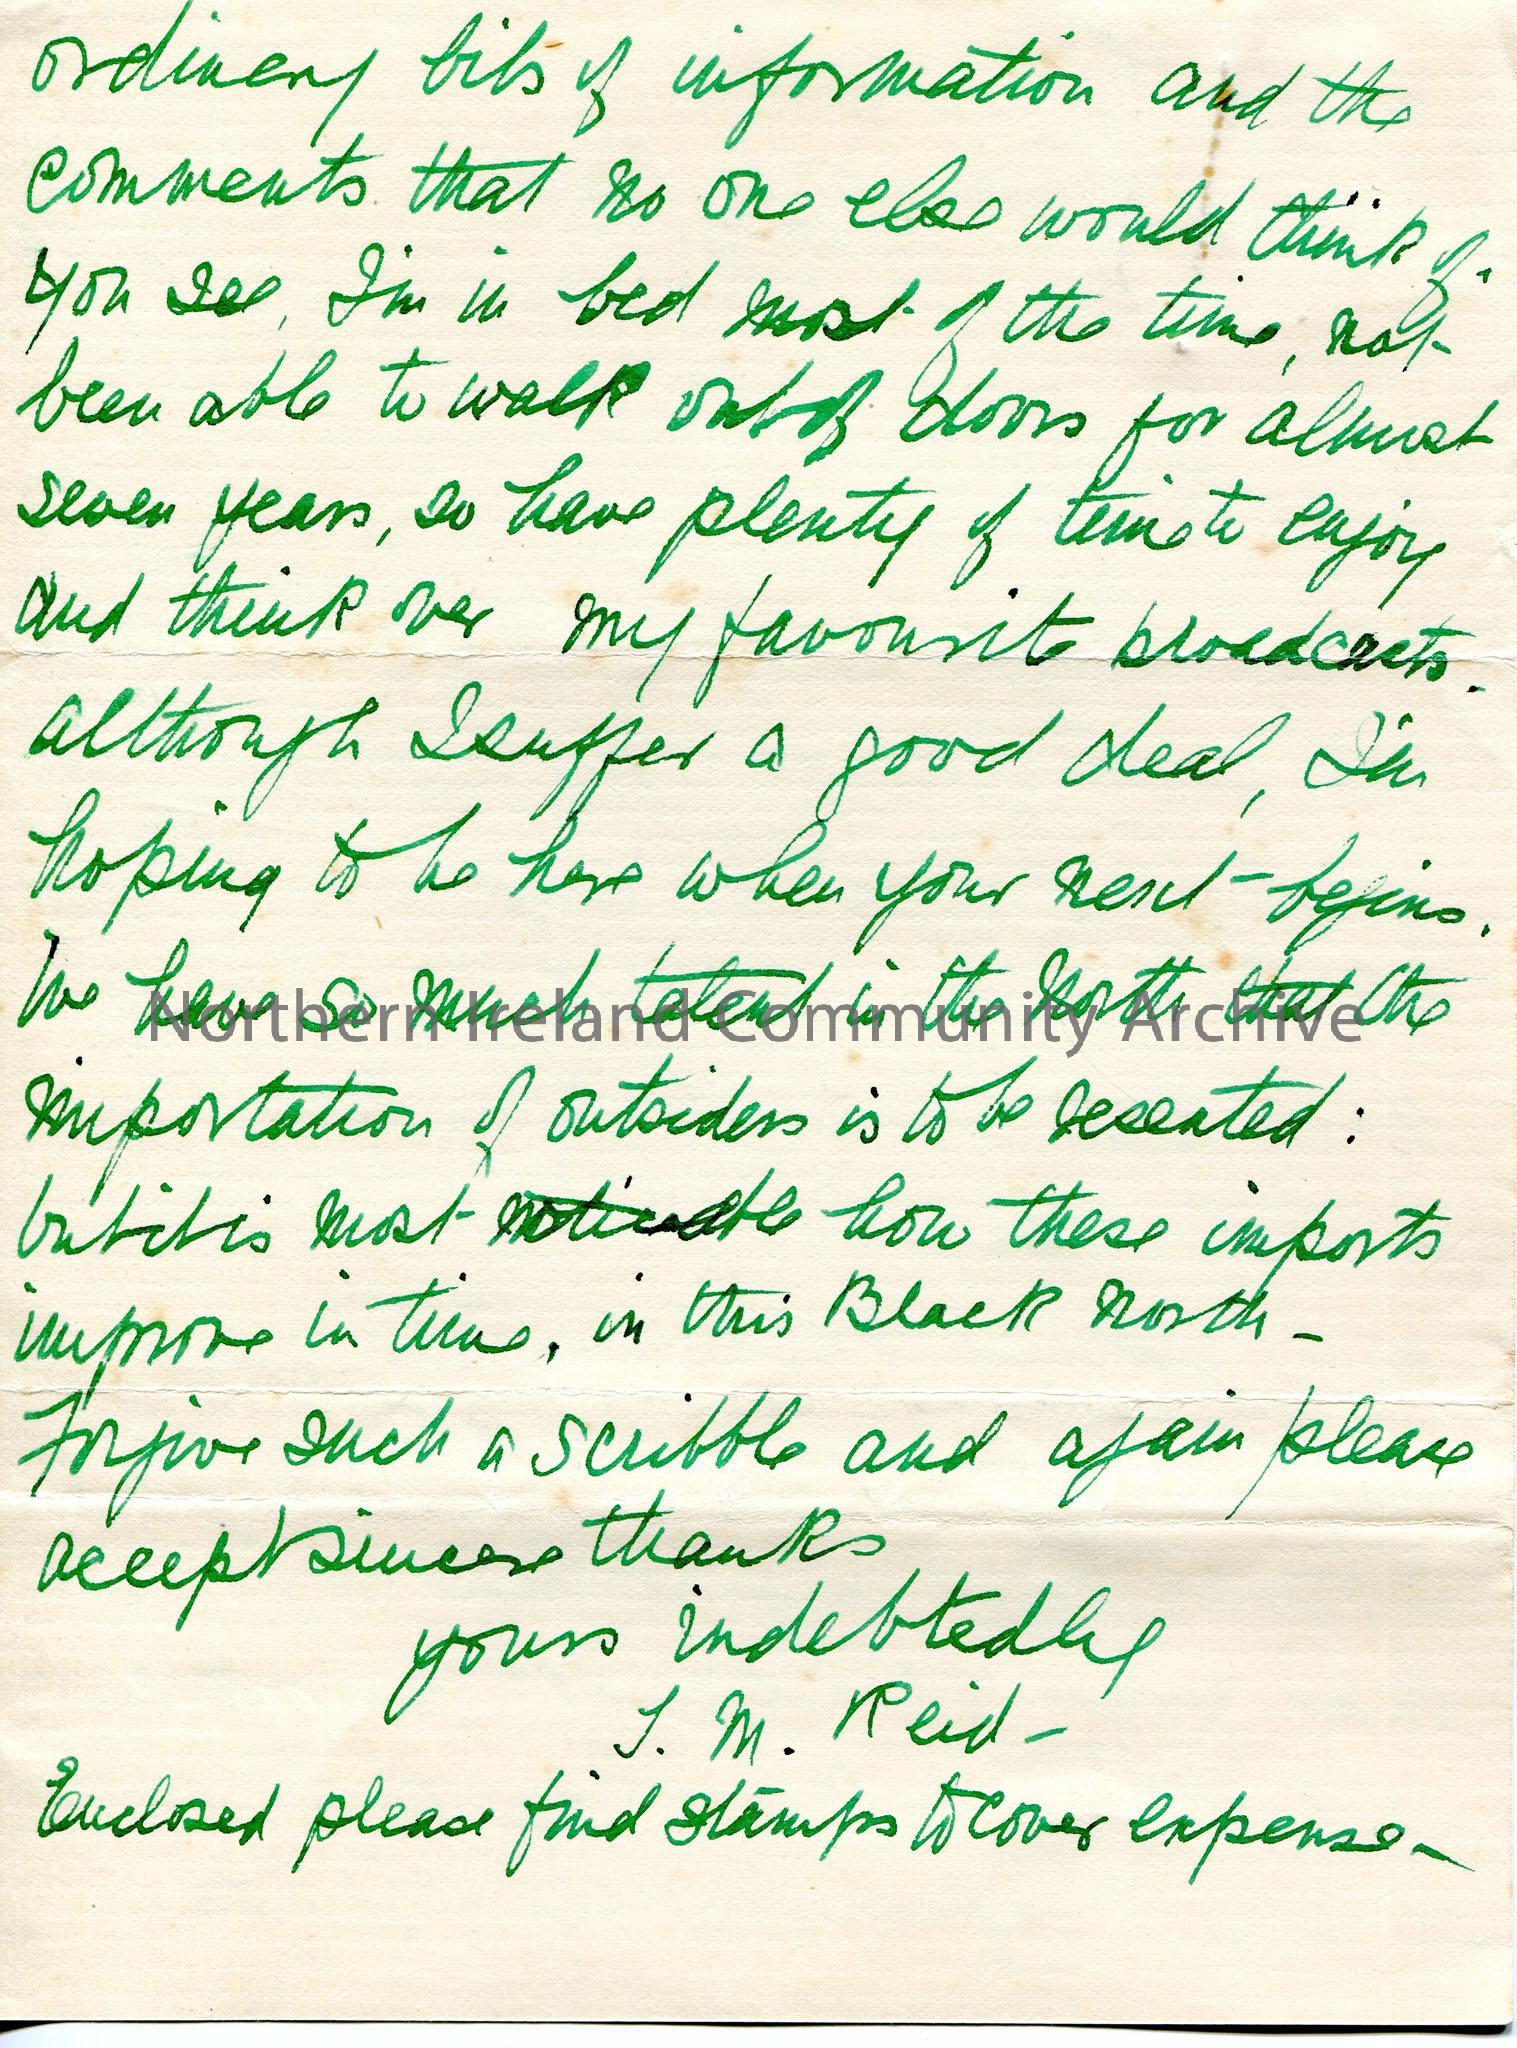 ordinary bits of information and the
comments that no one else would think of.
You see, I'm in bed most of the time, not
been able to walk out of doors for almost
seven years, so have plenty of time to enjoy
and think over my favourite broadcasts.
although I suffer a good deal, I'm
hoping to be here when your next begins.
We have so much talent in the North that the
Northern Ireland Community Archive
importation of outsiders is to be resented:
but it is most noticeable how these imports
improve in time, in this Black North -
Forgive such a scribble and again please
accept sincere thanks
yours indebtedly
M. Reid -
Enclosed please find stamps to cover expense -